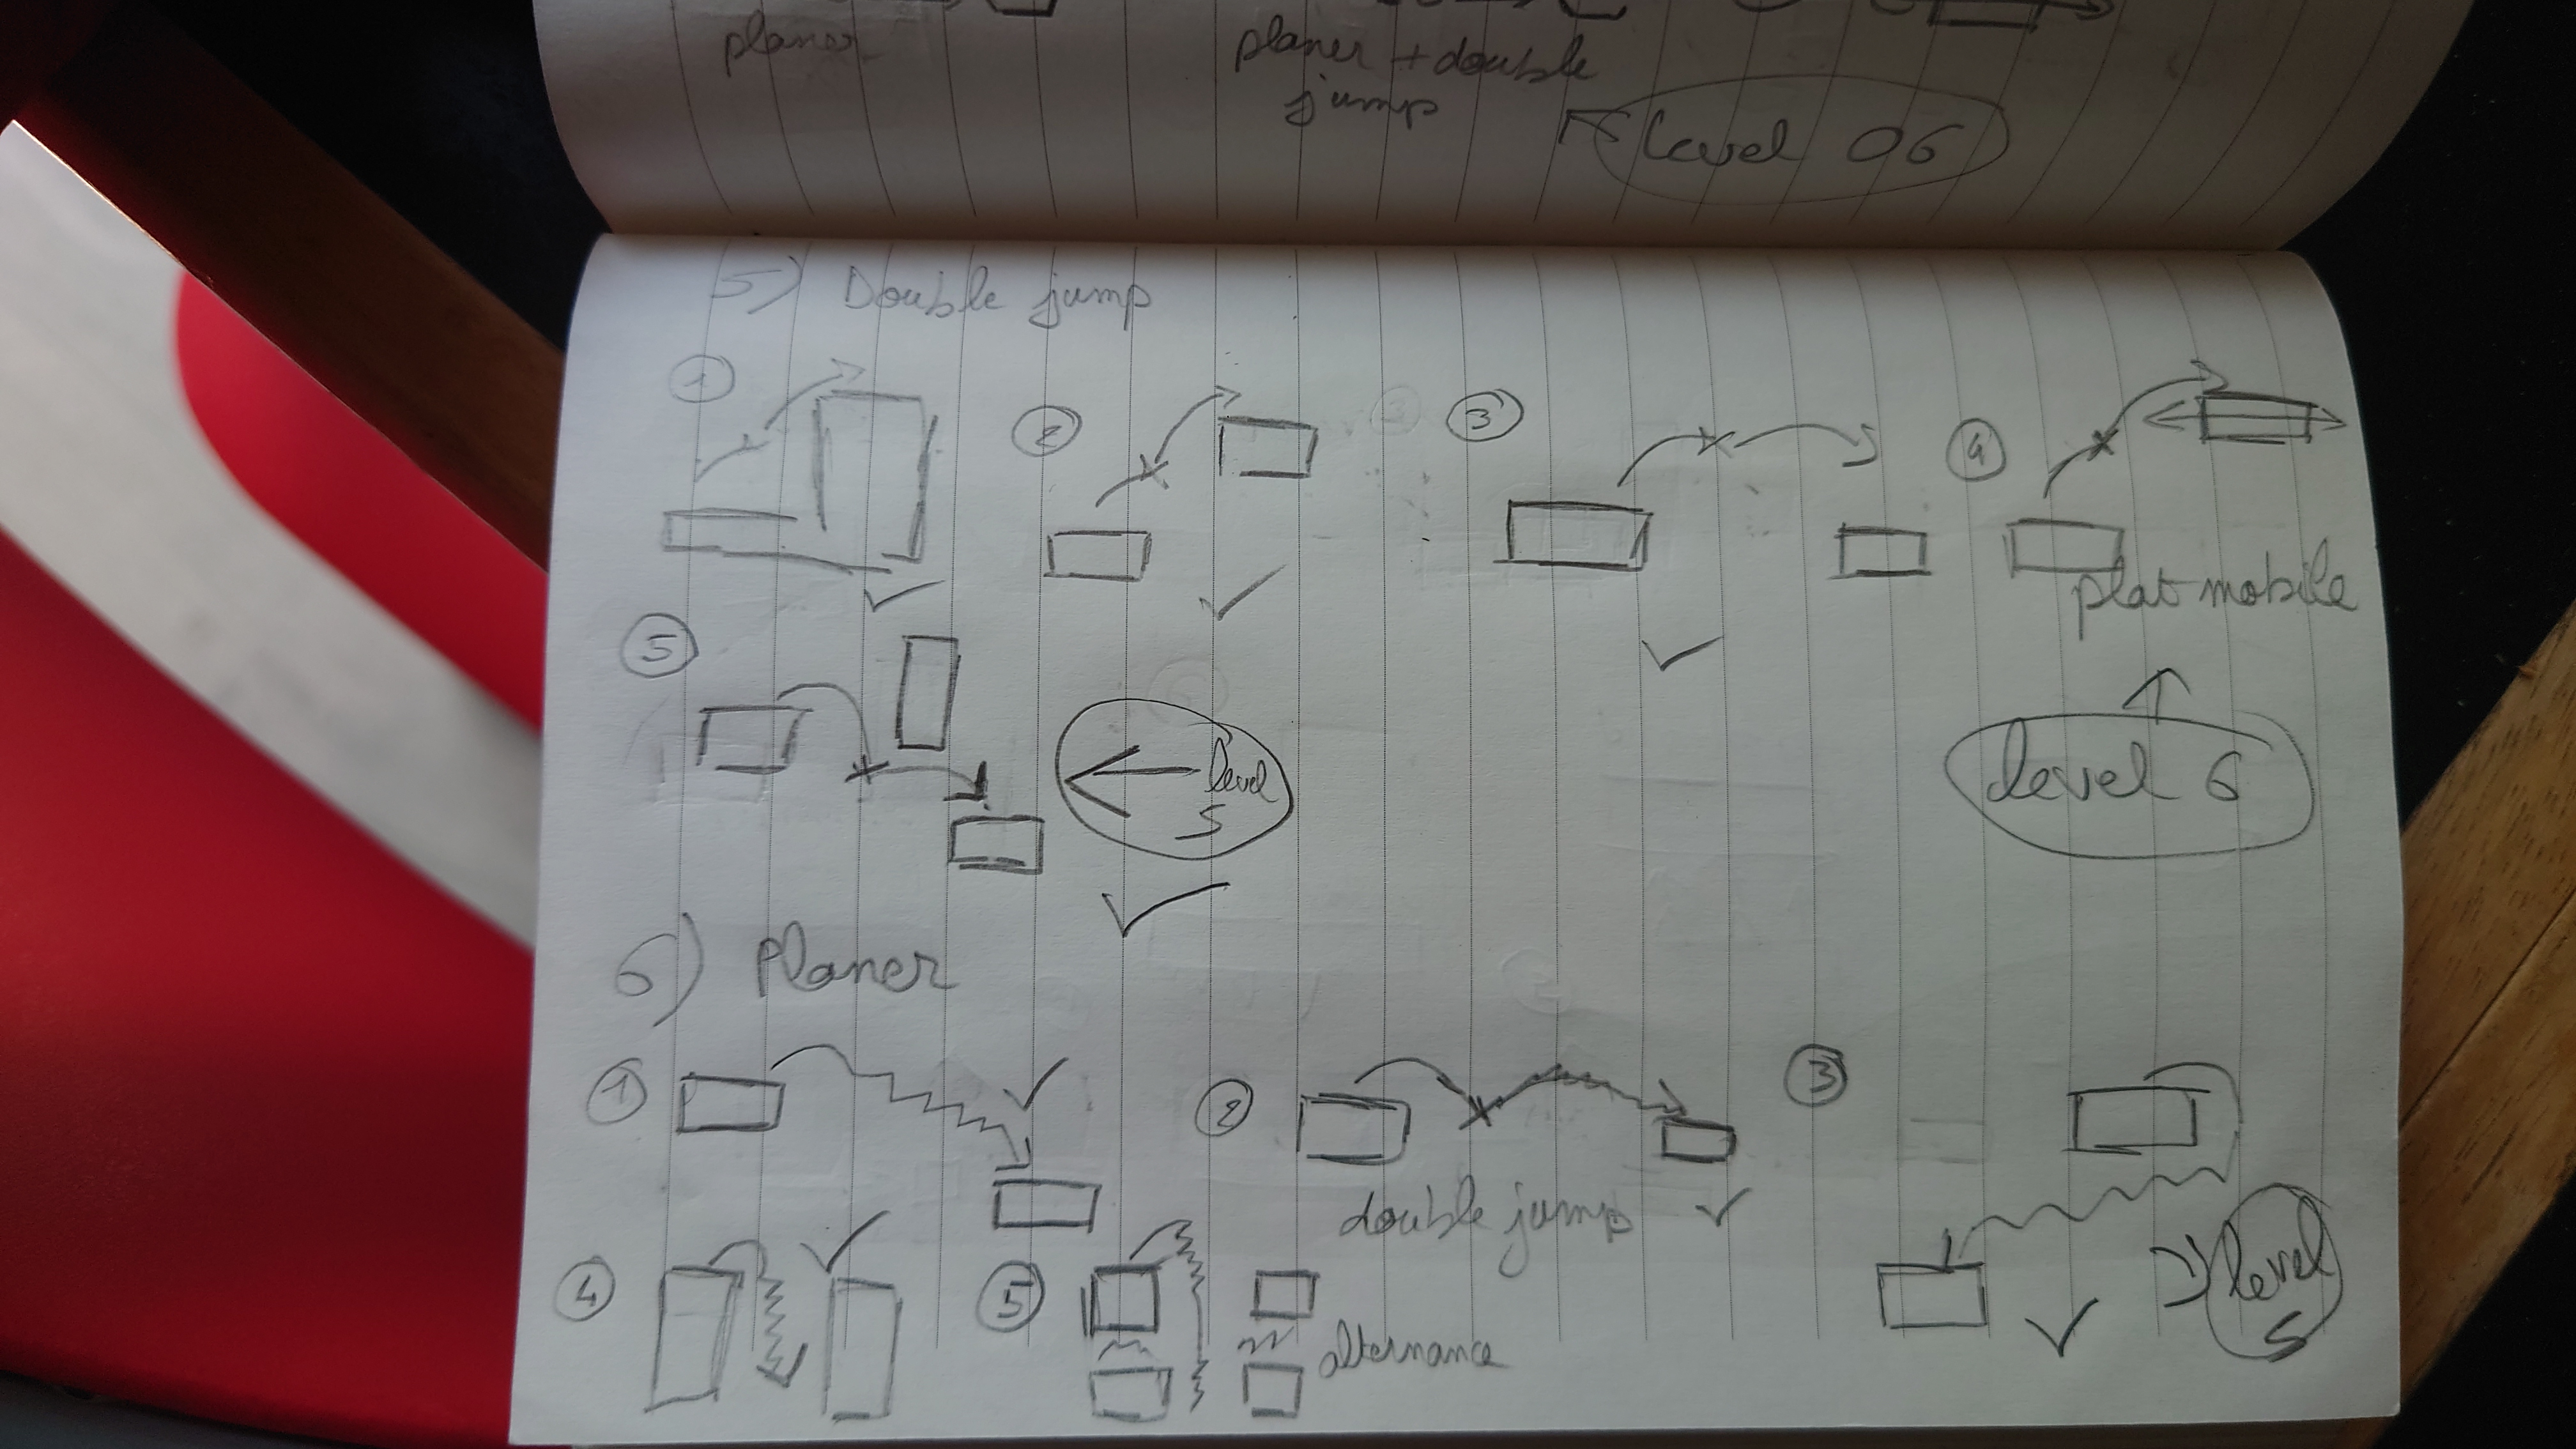 planer
planer + double
jump
level 06
5) Double jump
1
2
3
4
plat mobile
5
level
5
level 6
6) Planer
1
2
3
double jump
level
5
4
5
alternance